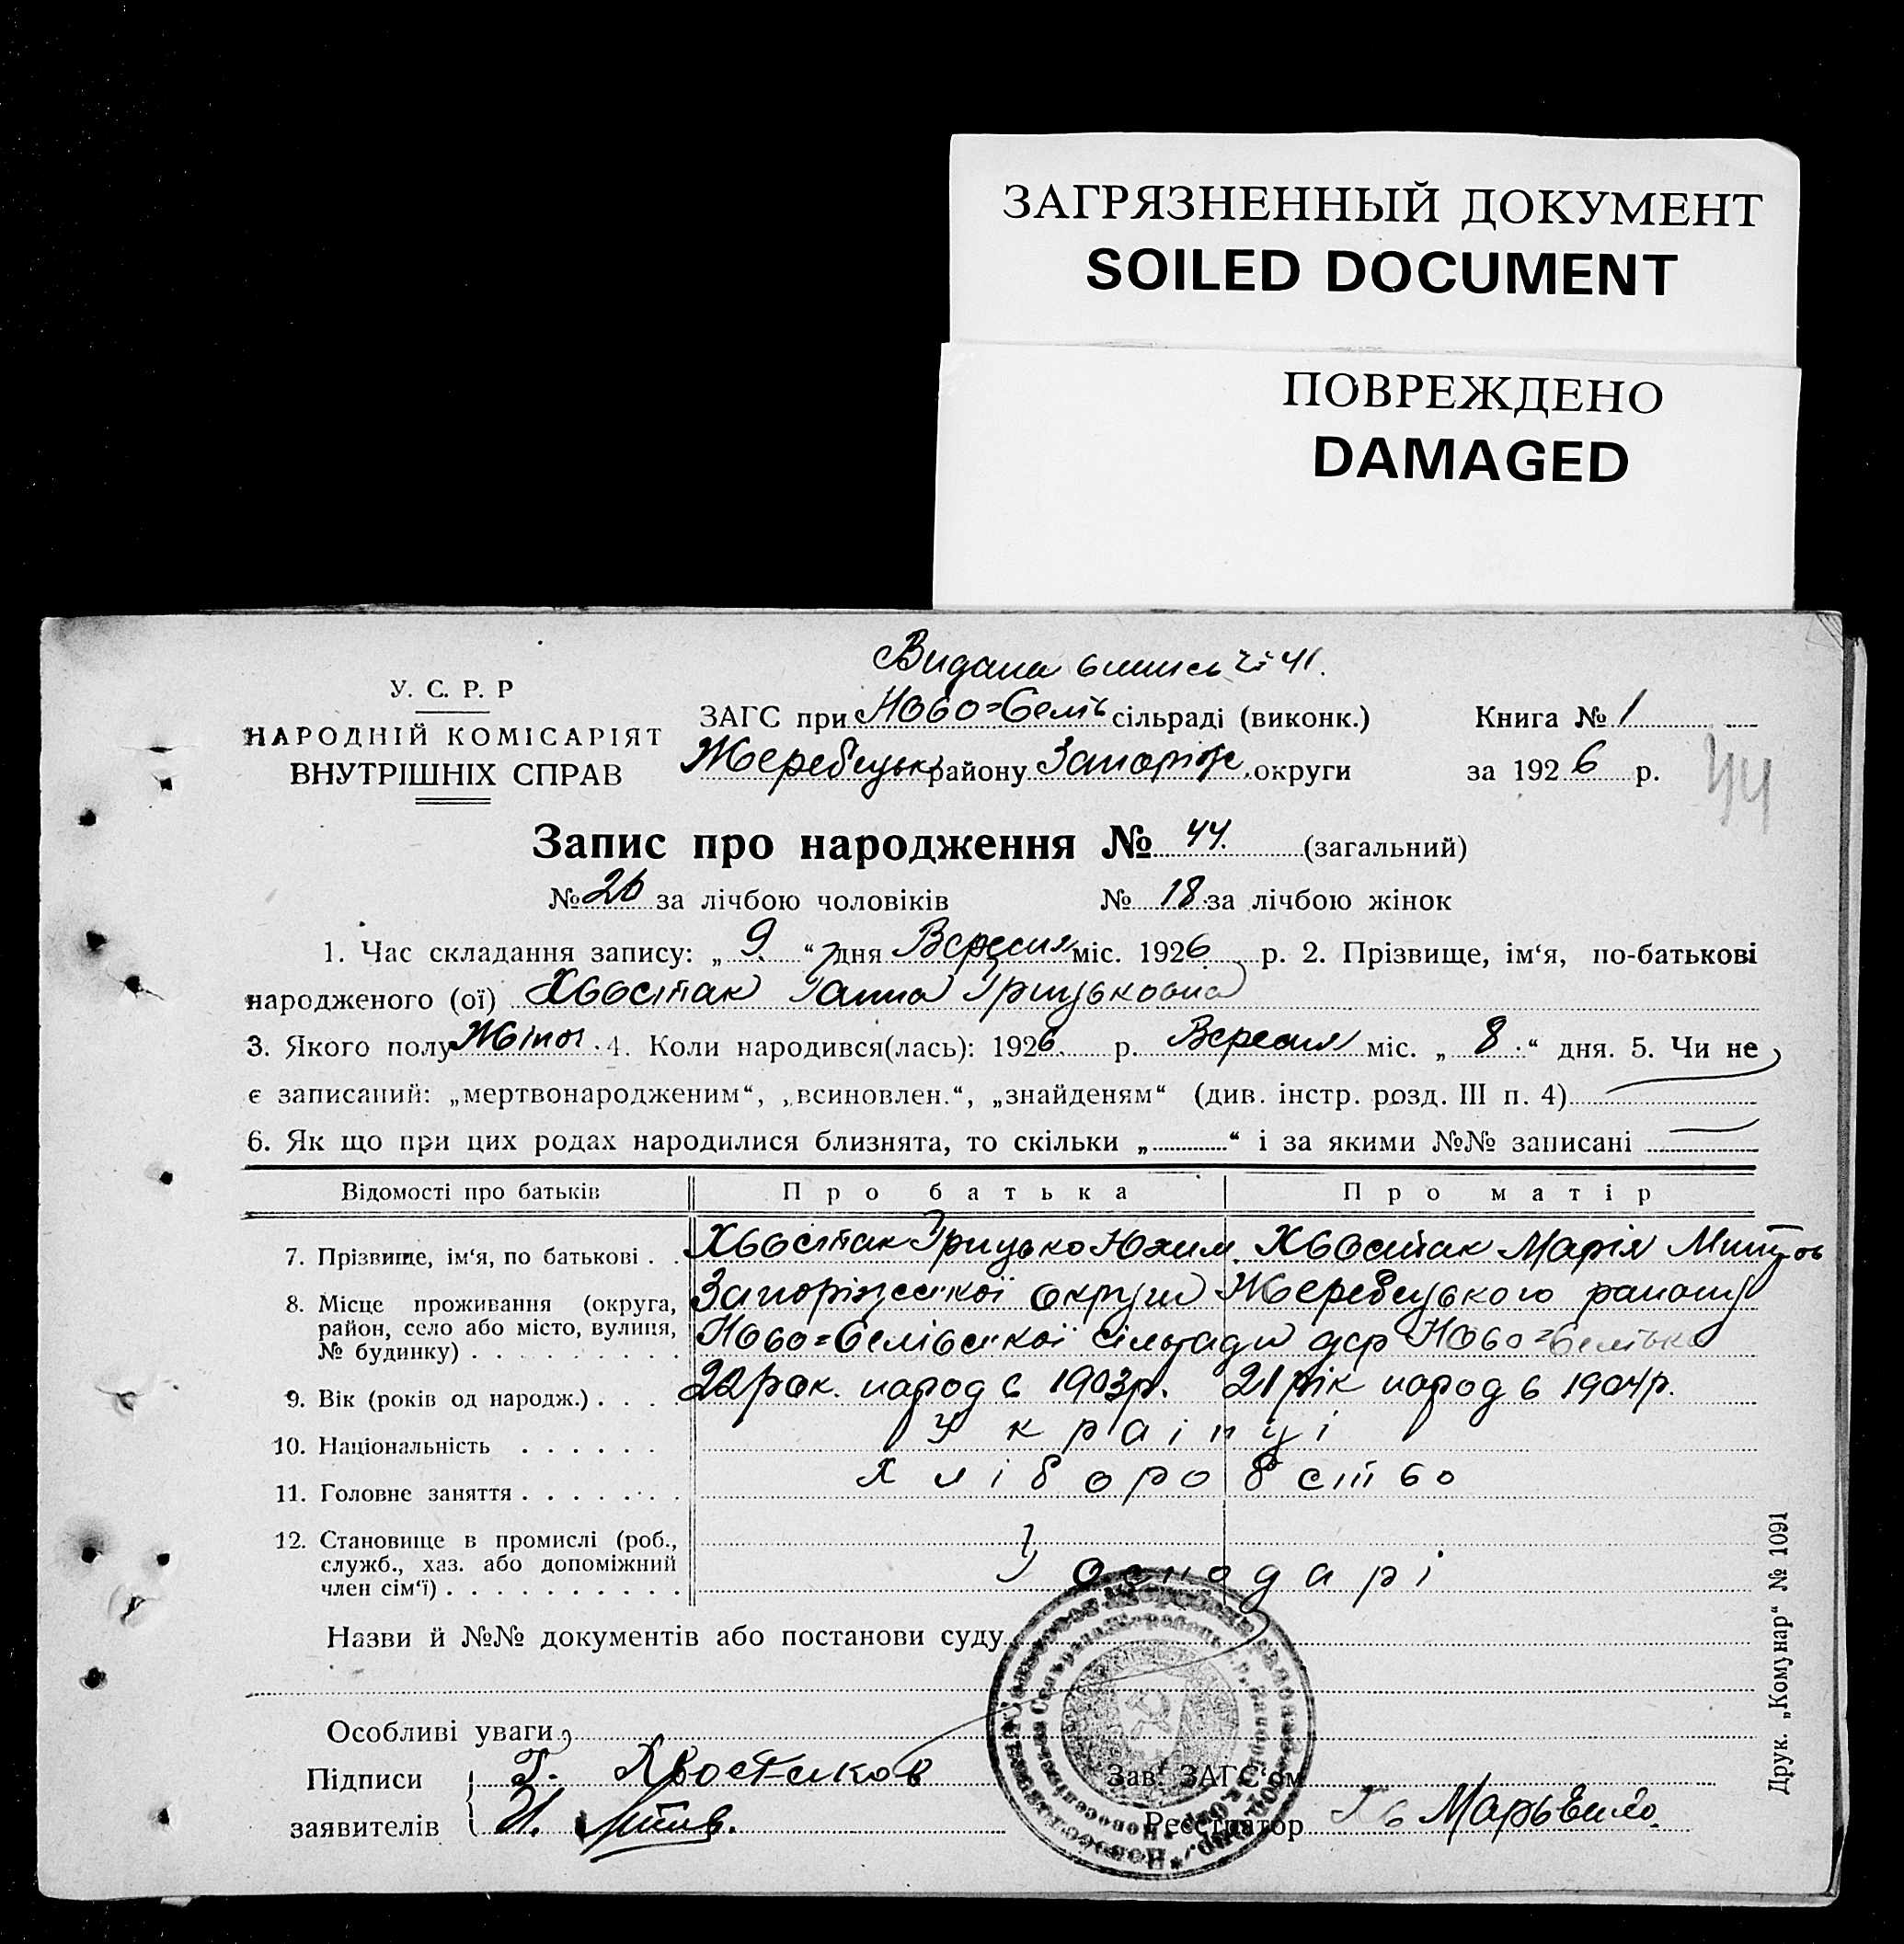 ЗАГРЯЗНЕННЫЙ ДОКУМЕНТ
SOILED DOCUMENT
ПОВРЕЖДЕНО
DAMAGED
Видана
У. С. Р. Р
НАРОДНІЙ КОМІСАРІЯТ
ВНУТРІШНІХ СПРАВ
ЗАГС при Ново=Селів сільраді (виконк.)
Книга № 1
Жеребецьк району Запоріж. округи
за 1926 р.
44
Запис про народження № 44. (загальний)
№ 26 за лічбою чоловіків № 18 за лічбою жінок
1. Час складання запису: „ 9 “ дня Вересня міс. 1926 р. 2. Прізвище, ім‘я, по-батькові
народженого (ої) Хвостак Ганна Грицьковна
3. Якого полу Жіноч. 4. Коли народився(лась): 1926 р. Вересня міс. „ 8 “ дня. 5. Чи не
є записаний: „мертвонародженим“, „всиновлен.“, „знайденям“ (див. інстр. розд. III п. 4)
6. Як що при цих родах народилися близнята, то скільки „ “ і за якими №№ записані
Відомості про батьків Про батька Про матір
7. Прізвище, ім‘я, по батькові . . Хвостак Грицько Юхим. Хвостак Марія
8. Місце проживання (округа, район, село або місто, вулиця, № будинку) . . . . . . . . . Запоріжської округи Жеребецького району
Ново=Селівської сільради Ново=Селівка
9. Вік (років од народж.) . . . . 22 рок. народ в 1903 р. 21 рік народ в 1904 р.
10. Національність . . . . . . Українці
11. Головне заняття . . . . . . . Хліборобство
12. Становище в промислі (роб., служб., хаз. або допоміжний член сім‘ї) . . . . . . . . . . Господарі
Назви й №№ документів або постанови суду
Особливі уваги
Підписи
заявителів
Г. Хвостаков
И.
Зав. ЗАГС‘ом
Реєстратор Марьенко
Друк. „Комунар“ № 1091